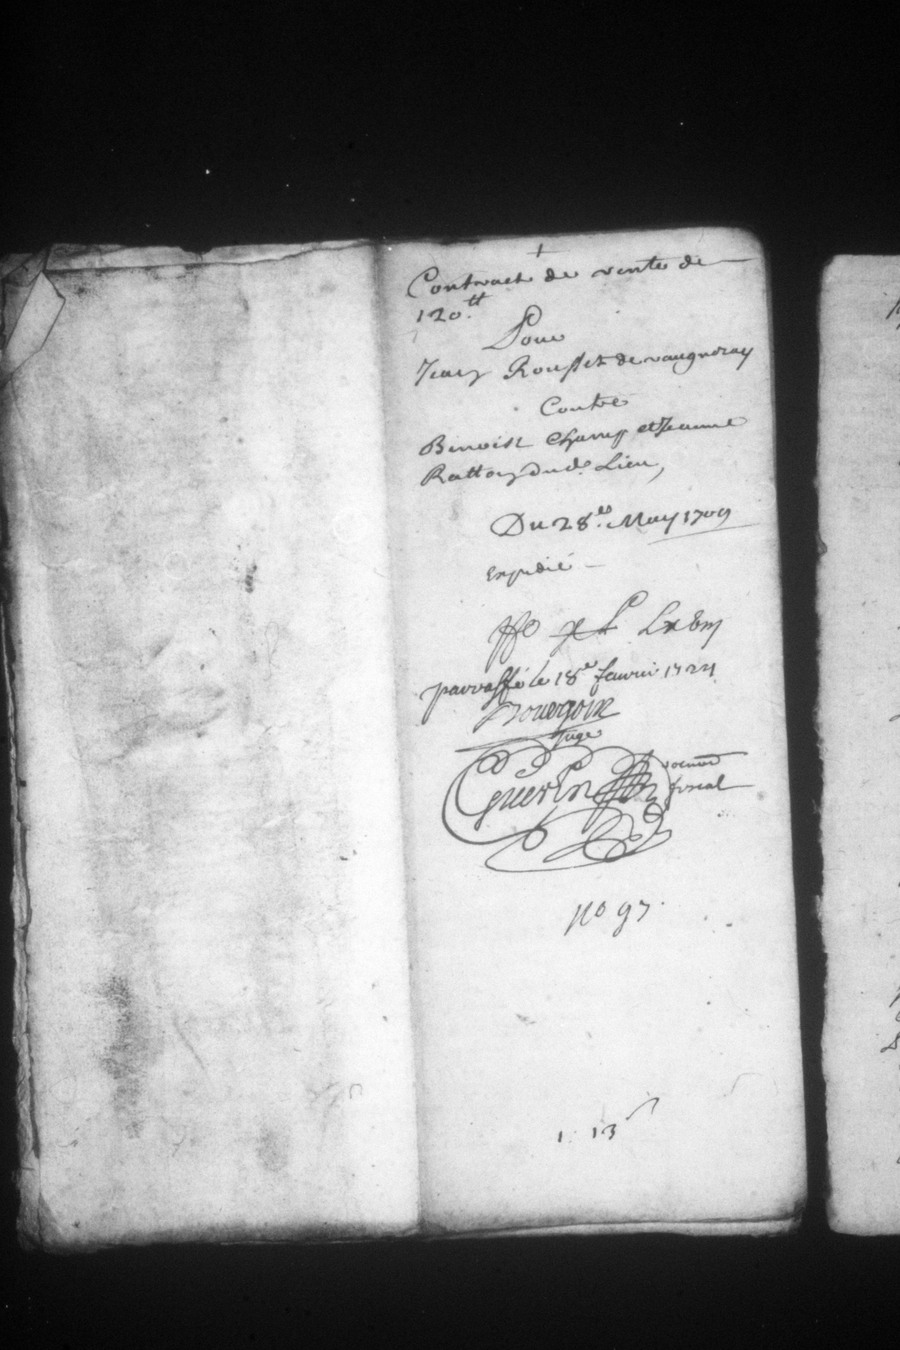 Contract de vente de
120.tt
Pour
Jean Rousset de vaugneray
Contre
Benoist Champ et Jeanne
Ratton dud. Lieu,
Du 28.e May 1709
Expedié
parraffé le 18e feuvrier 1724
Bourgoin
Juge
Guerin
fiscal
No 97.
1. 13